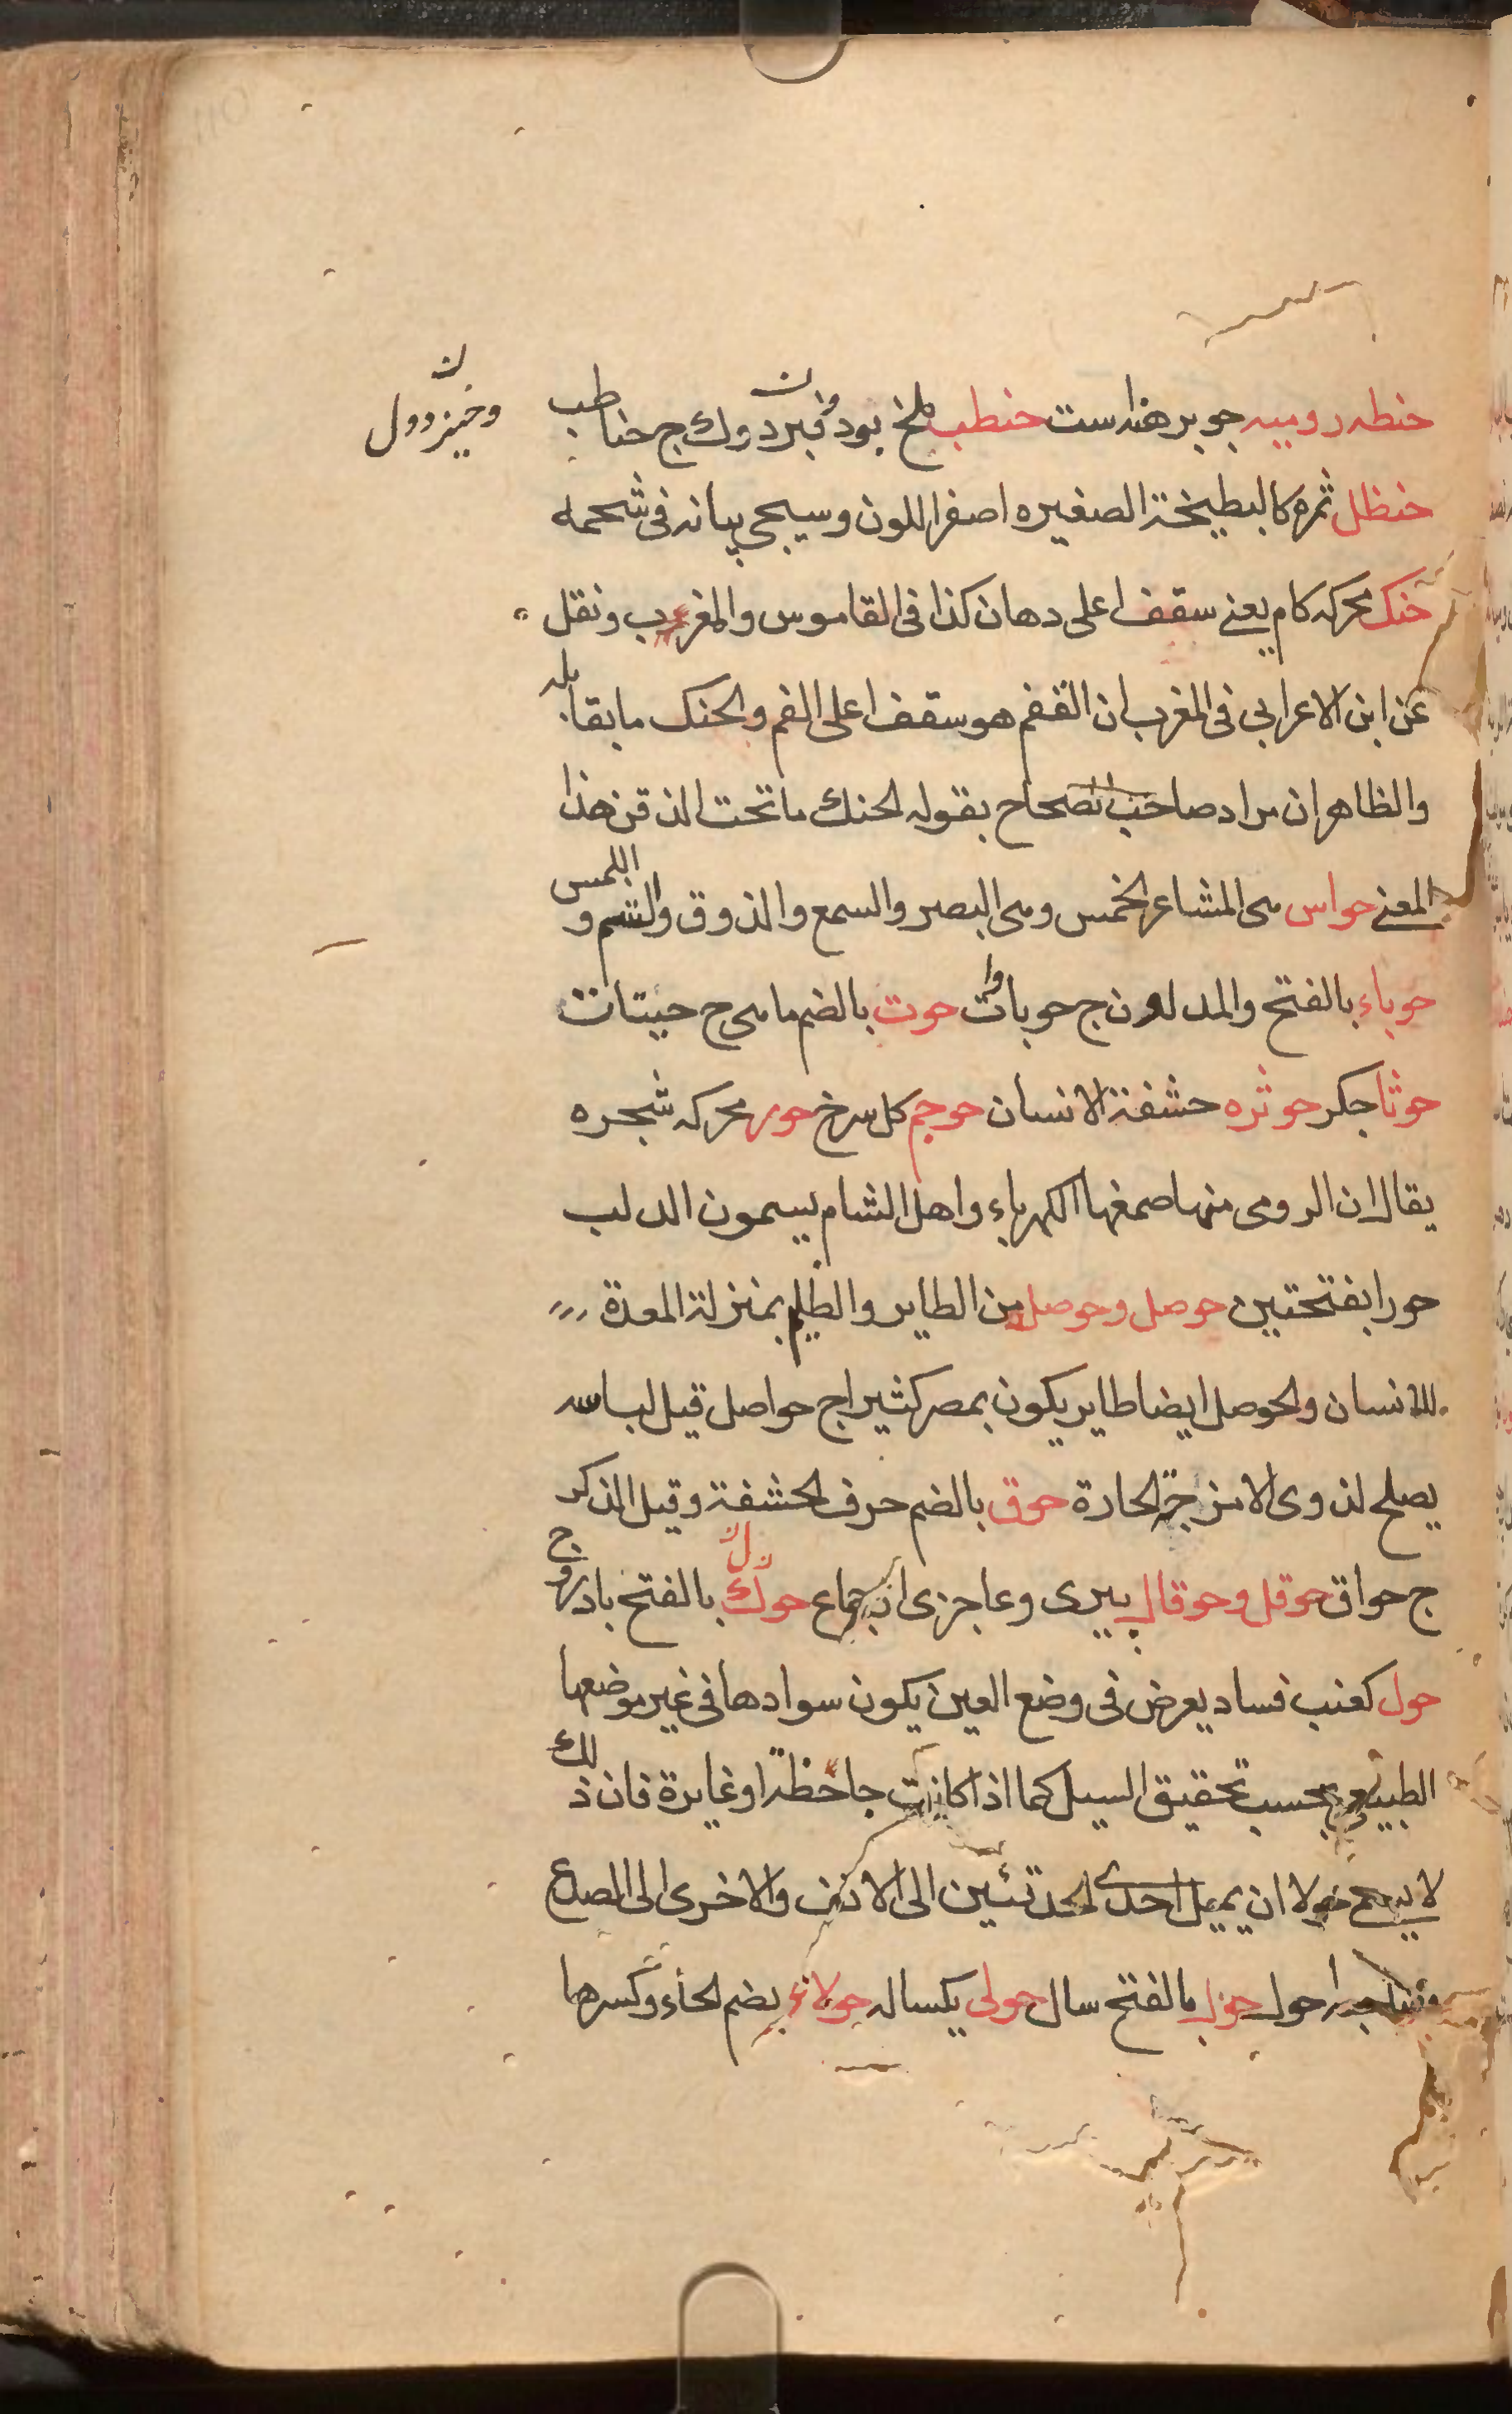 حنطه روميه جو برهنه است حنطب ملخ بود و خبزدوك ج حناطب
حنظل ثمره كالبطيخة الصغيره اصفر اللون وسيجى بيانه فى شحمه
حنك محركه كام يعنى سقف اعلى دهان كذا فى القاموس والمغرب ونقل
عن ابن الاعرابى فى المغرب ان الفقم هو سقف اعلى الفم والحنك ما يقابله
والظاهر ان مراد صاحب الصحاح بقوله الحنك ما تحت الذقن هذا
المعنى حواس هى المشاعر الخمس وهى البصر والسمع والذوق والشم و اللمس
حوباء بالفتح والمد ج حوباوات حوت بالضم ماهى ج حيتان
حوثا جكر حوثره حشفة الانسان حوجم كل سرخ حور محركه شجره
يقال ان الرومى منها صمغها الكهرباء واهل الشام يسمون الدلب
حورا بفتحتين حوصل وحوصله من الطاير والظليم بمنزلة المعدة
للانسان والحوصل ايضا طاير يكون بمصر كثيرا ج حواصل قيل لباسه
يصلح لذوى الامزجة الحارة حوق بالضم حرف الحشفة وقيل الذكر
ج حواق حوقل وحوقال پيرى وعاجزى از جماع حوك بالفتح بادروج
حول كعنب فساد يعرض فى وضع العين يكون سوادها فى غير موضعها
الطبيعى بحسب تحقيق السيل كما اذا كانت جاحظة او غايرة فان ذلك
لا يسمى حولا ان يميل احدى الحدقتين الى الانف والاخرى الى الصدغ
احول حول بالفتح سال حولى يكساله حولاء بضم الحاء وكسرها
وخبزدوك